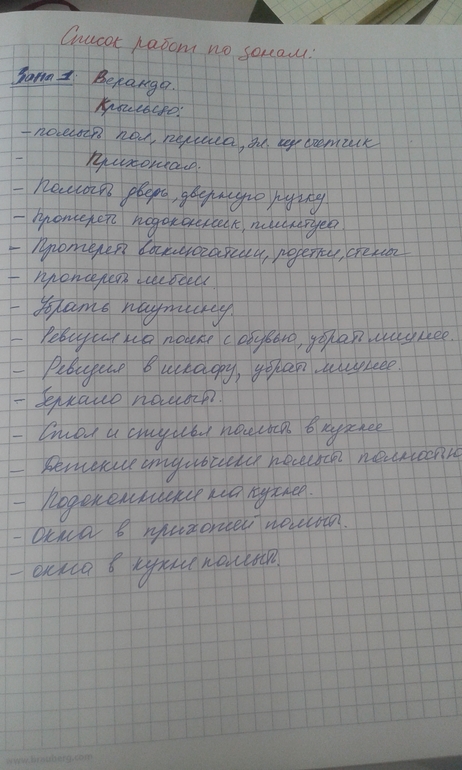 Список работ по зонам:
Зона 1: Веранда.
Крыльцо:
- помыть пол, перила, эл. счетчик
- Прихожая.
- Помыть дверь, дверную ручку
- протереть подоконник, плинтуса.
- Протереть выключатели, розетки, стены
- протереть мебель.
- Убрать паутину.
- Ревизия на полке с обувью, убрать лишнее.
- Ревизия в шкафу, убрать лишнее.
- Зеркало помыть.
- Стол и стулья помыть в кухне
- Детские стульчики помыть полностью
- Подоконники на кухне.
- Окна в прихожей помыть.
- окна в кухне помыть.